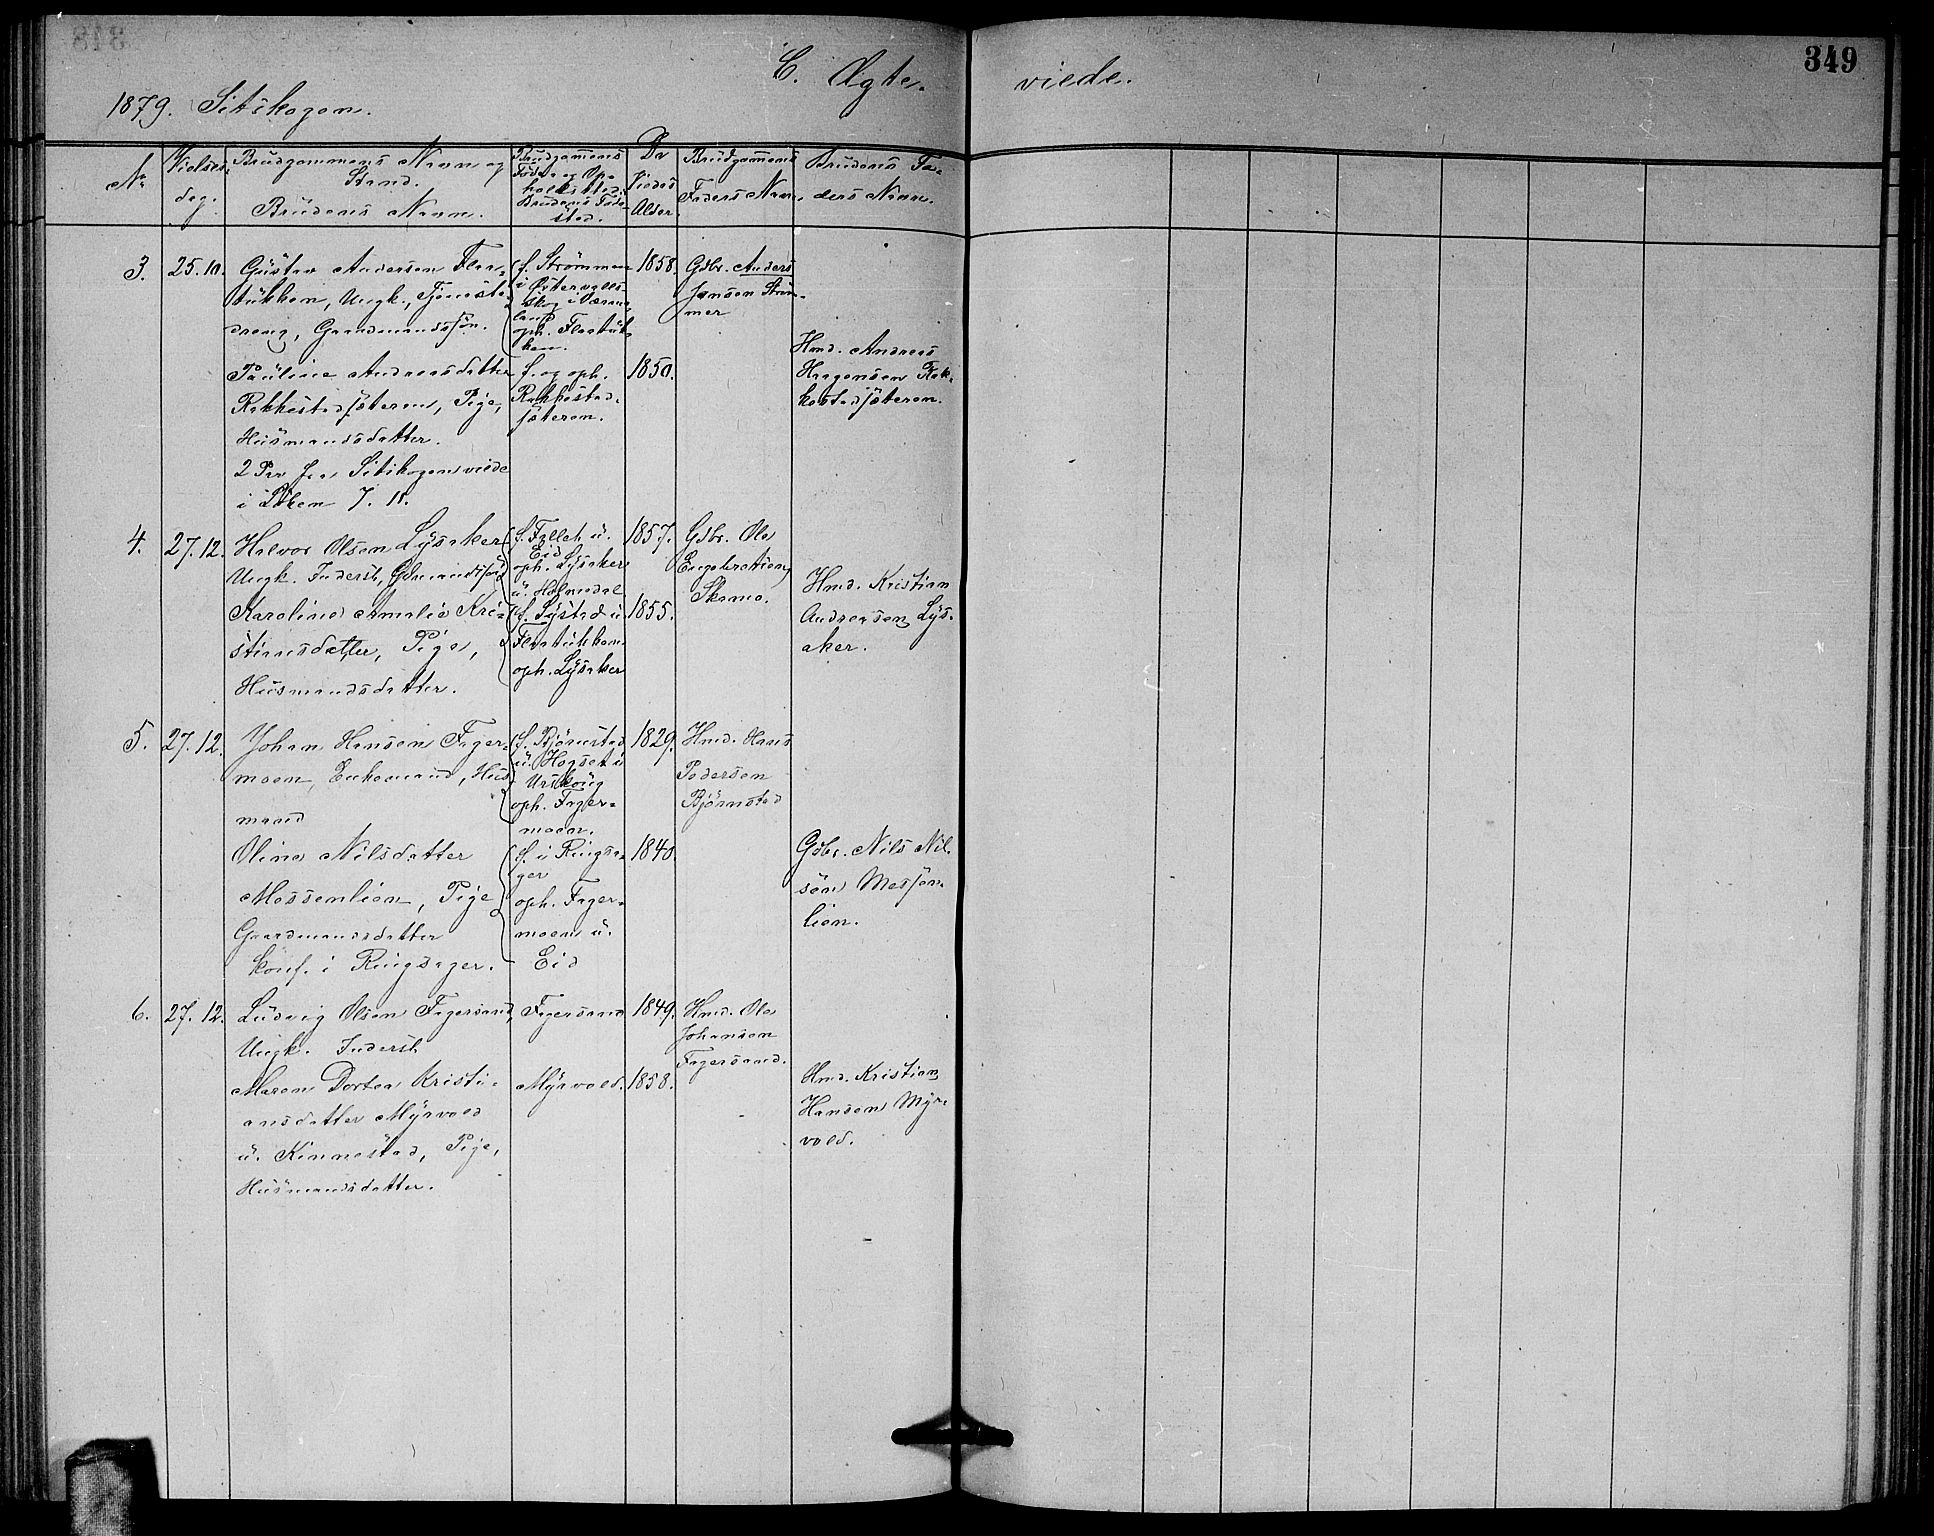 349
C. Ægte. viede.
1879. Sitskogen.
No
Vielses
dag.
Brudgommens Navn og
Stand.
Brudens Navn.
Brudgommens
Føde og Op-
holdssted.
Brudens Føde-
sted.
De
Viedes
Alder.
Brudgommens
Faders Navn.
Brudens Fa-
ders Navn.
3. 25.10.
Gustav Andersen Flaa-
tükken, Ungk., Tjeneste
dreng, Gaardmandssøn.
f. Strømmen
i Østervalls
skog i Værm
land
oph. Flaatük
ken.
1858.
Gdbr. Anders
Jansen Strøm-
mer
Pauline Andreasdatter
Rakkestadsæteren, Pige,
Husmandsdatter.
f. og oph.
Rakkestad-
sæteren.
1850.
Hmd. Andreas
Haagensen Rak-
kestadsæteren.
2 Par fra Sitskogen viede
i Løken 7. 11.
4. 27.12.
Halvor Olsen Lysaker
Ungk. Inderst, Gdmandssøn
f. Fallet u.
Eid
oph. Lysaker
u. Holmedal
1857.
Gdbr. Ole
Engebretsen
Skamo.
Karoline Amalie Kri-
stiansdatter, Pige,
Husmandsdatter.
f. Systad u.
Flaatükken
oph. Lysaker
1855.
Hmd. Kristian
Andreasen Lys-
aker.
5. 27.12.
Johan Hansen Fager-
moen, Enkemand, Hus
mand
f. Bjørnstad
u. Hogset i
Urskoug
oph. Fager-
moen.
1829.
Hmd. Hans
Pedersen
Bjørnstad
Oline Nilsdatter
Messenlien, Pige
Gaardmandsdatter
konf. i Ringsager.
f. i Ringsa-
ger
oph. Fager-
moen u.
Eid
1840.
Gdbr. Nils Nil-
sen Messen-
lien.
6. 27.12.
Ludvig Olsen Fagersand,
Ungk. Inderst
Fagersand
1849.
Hmd. Ole
Johansen
Fagersand.
Maren Dortea Kristi-
ansdatter Myrvold
u. Kinnestad, Pige,
Husmandsdatter.
Myrvold.
1858.
Hmd. Kristian
Hansen Myr-
vold.